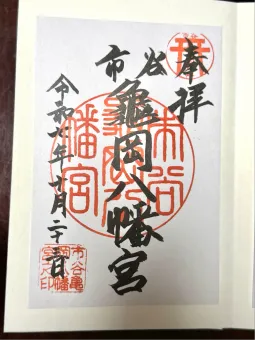 奉拝
市谷
龜岡八幡宮
市谷
亀岡八
幡宮
令和年十月二十日
市谷亀
岡八幡
宮之印